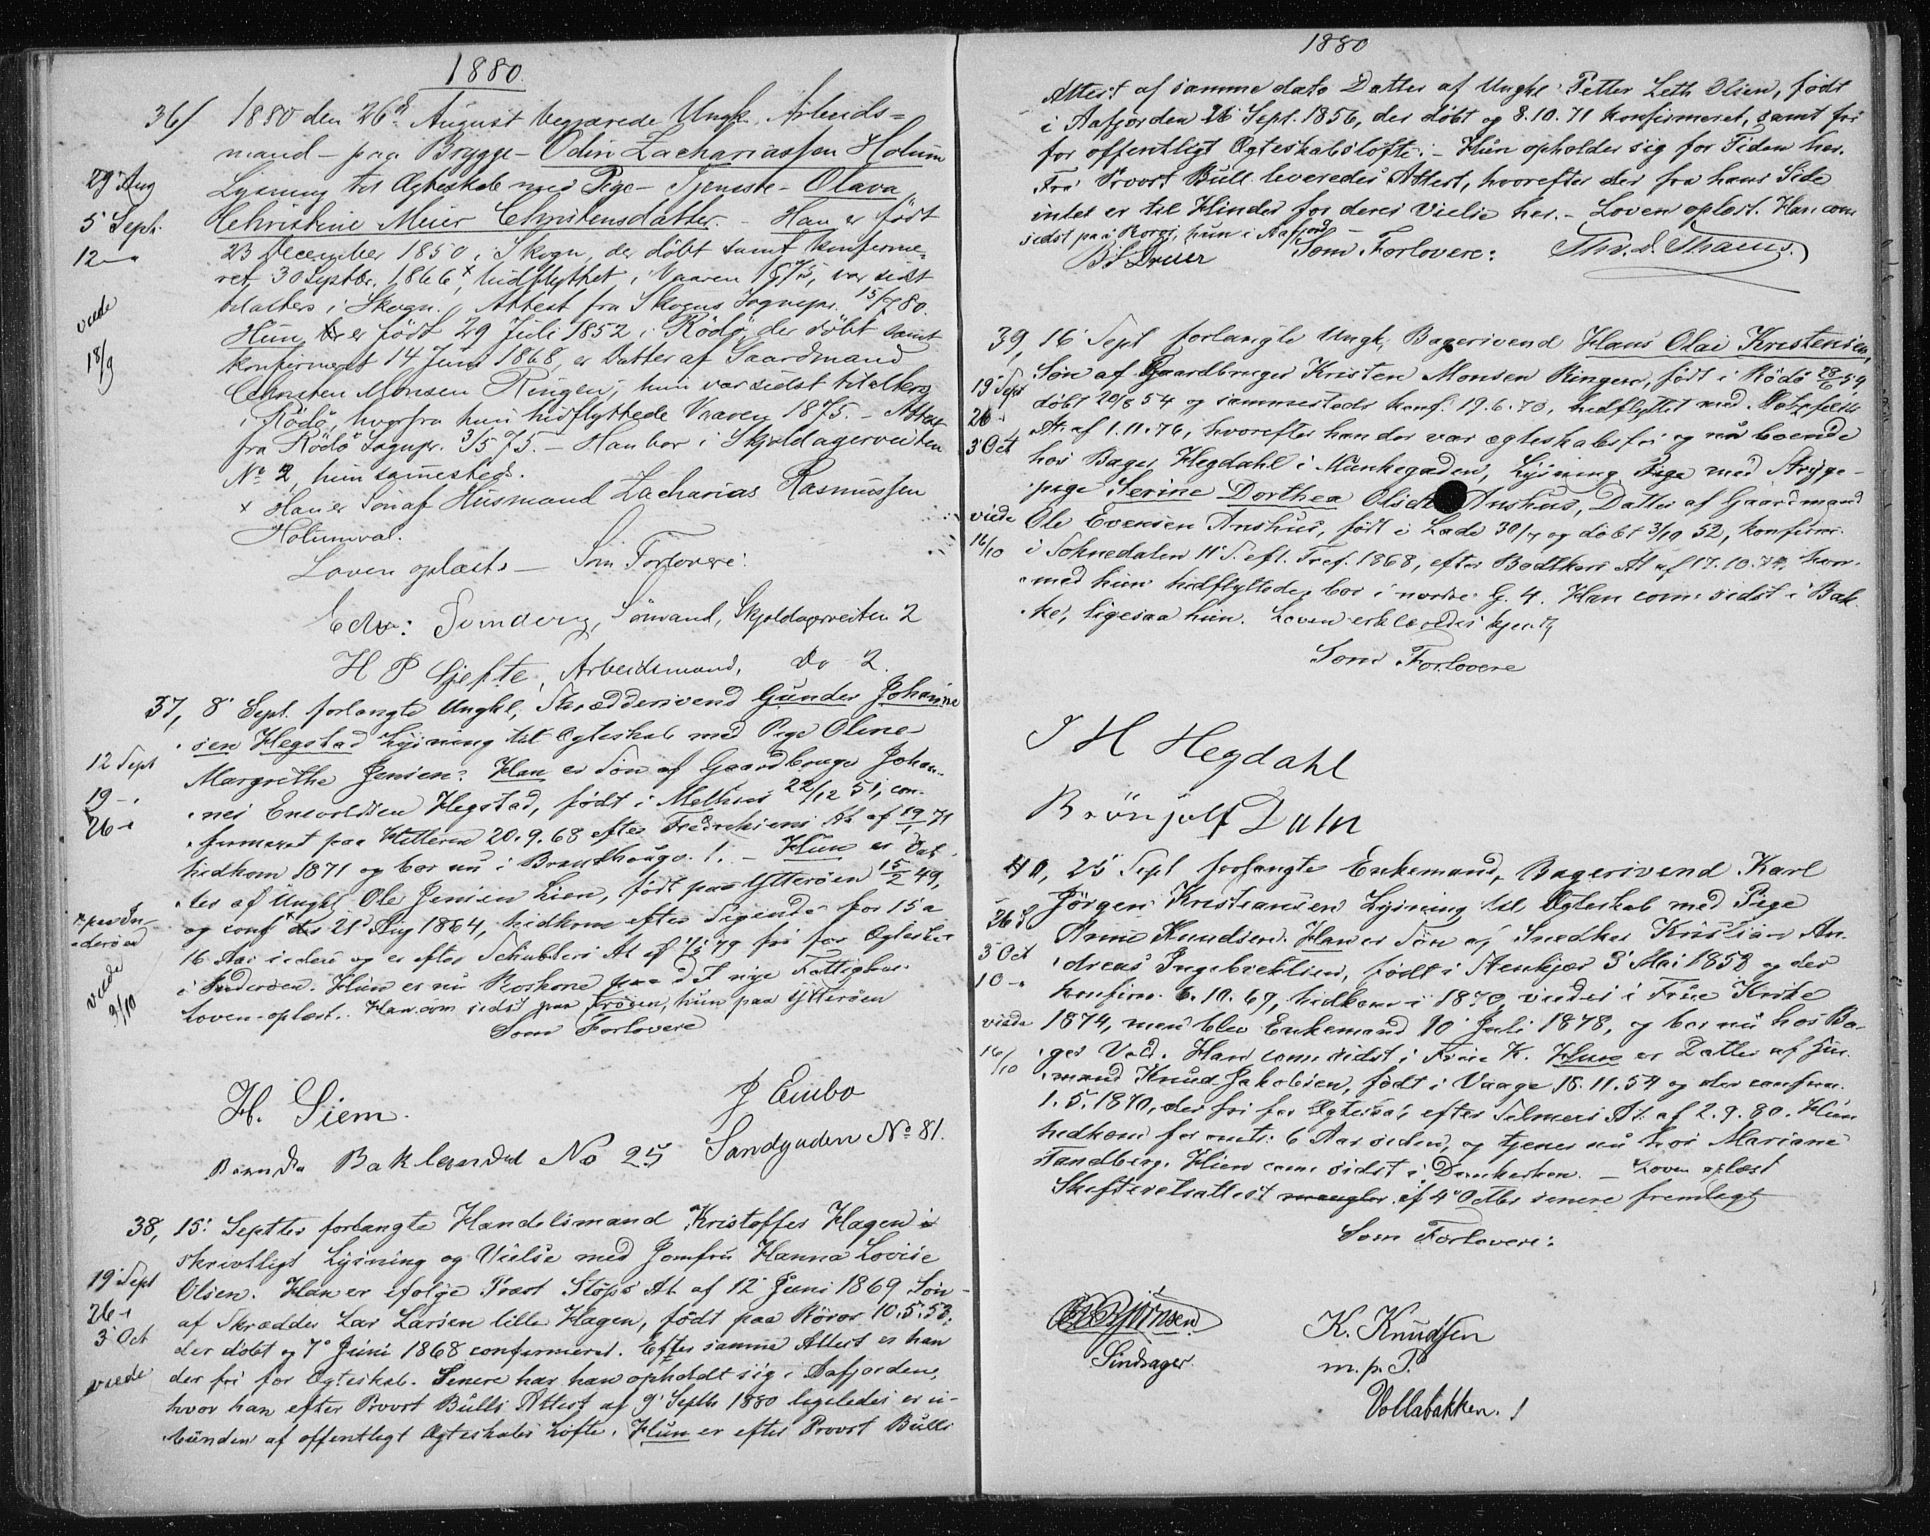 1880.
36/ 1880 den 26de August begjærede Ungk. Arbeids=
mand - paa Brygge - Odin Zachariassen Holum
29 Aug Lysning til Ægteskab med Pige - Tjeneste - Olava
5 Sept. Christine Meier Christensdatter. - Han er født
12 — 23 December 1850 i Skogn, der døbt samt konfirme-
ret 30 Septbr. 1866 x, hidflyttet i Vaaren 1875, var sidst
tilalters i Skogn. Attest fra Skogns Sognepr. 15/7 80.
viede Hun er født 29 Juli 1852 i Rödö, der döbt samt
18/9 konfirmeret 14 Juni 1868, er Datter af Gaardmand
Christen Monsen Ringen; hun var sidst tilalters
i Rödö, hvorfra hun hidflyttede Vaaren 1875. - Attest
fra Rödö Sognepr. 3/5 75. - Han bor i Skjoldagerveiten
No 2, hun sammesteds.
x Han er Søn af Husmand Zacharias Rasmussen
Holumval.
Loven oplæst. — Som Forlovere:
Edv: Svindery, Sömand, Skjoldagerveiten 2
H P Gjefte, Arbeidsmand, do 2.
37, 8 Sept. forlangte Ungkl, Skræddersvend Gunder Johanne
sen Hegstad Lysning til Ægteskab med Pige Oline
12 Sept Margrethe Jensen. Han er Søn af Gaardbruger Johan-
19 - nes Enevoldsen Hegstad, født i Melhus 22/12 51, con-
26 - firmeret paa Hitteren 20.9.68 efter Fredriksens At. af 19/1 71
hidkom 1871 og bor nu i Brandhaugv. 1. - Hun er Dat-
ter af Ungkl Ole Jensen Lien, født paa Ytterøen 15/2 49,
x paa In- og conf x 21 Aug 1864, hidkom efter Sigende for 15 a
derøen 16 Aar siden og er efter Schüblers At af 79 fri for Ægteska
viede i Inderøen. Hun er nu Vaskone paa det nye Fattighus.
3/10 Loven oplæst. Han com sidst paa Frøsen, hun paa Ytterøen
Som Forlovere
H. Siem. J Embo
Baklandet No 25 Sandgaden No 81.
38, 15 Septbr forlangte Handelsmand Kristoffer Hagen
skrivtligt Lysning og Vielse med Jomfru Hanna Lovise
19 Sept Olsen. Han er ifølge Præst Støps At. af 12 Juni 1869 Søn
26 - af Skrædder Lars Larsen lille Hagen, født paa Röros 10.5.53,
3 Oct der døbt og 7 Juni 1868 confirmeret. Efter samme Attest er han
viede der fri for Ægteskab. Senere har han opholdt sig i Aafjorden,
hvor han efter Provst Bülls Attest af 9 Septbr 1880 ligeledes er u-
bunden af offentligt Ægteskabs Løfte. Hun er efter Provst Bülls
1880
Attest af samme dato Datter af Ungkl. Petter Leth Olsen, født
i Aafjorden 26 Sept. 1856, der døbt og 8.10.71 konfirmeret, samt fri
for offentligt Ægteskabsløfte. - Hun opholder sig for Tiden her.
Fra Provst Büll leveredes Attest, hvorefter der fra hans Side
intet er til Hinder for deres Vielse her. - Loven oplæst. Han com
sidst paa Røros, hun i Aafjord -
Som Forlovere:
39, 16 Sept forlangte Ungk, Bagersvend Hans Olai Kristensen,
19 Sept Søn af Gaardbruger Kristen Monsen Ringen, født i Rödö 54
26 - døbt 20/8 54 og sammesteds konf. 19.6.70, hidflyttet med
3 Oct At. af 1.11.76, hvorefter han der var ægteskabsfri og nu boende
hos Bager Hegdahl i Munkegaden, Lysning med Stryge-
pige Serine Dorthea Olsdt Anshus, Datter af Gaardmand
viede Ole Evensen Anshus, født i Lade 30/7 og døbt 3/10 52, konfirm.
16/10 i Soknedalen 11 S. eft. Tref. 1868, efter At af 17.10.74, hvor-
med hun hidflyttede, bor i nordre G. 4. Han com. sidst i Bak-
ke, ligesaa hun. Loven erklæredes kjendt
Som Forlovere
J H Hegdahl
Brönjolf Dahl
40, 25 Sept forlangte Enkemand, Bagersvend Karl
Jörgen Kristiansen Lysning til Ægteskab med Pige
26 S Anne Knudsen. Han er Søn af Snedker Kristian An-
3 Oct dreas Ingebrektsen, født i Stenkjær 3 Mai 1853 og der
10 - konfirm. 6.10.67, hidkom i 1870, viedes i Frue Kirke
viede 1874, men blev Enkemand 10 Juli 1878, og bor nu hos Ba-
16/10 ger Vold. Han com sidst i Frue K. Hun er Datter af
mand Knud Jakobsen, født i Vaage 18.11.54 og der confirm.
1.5.1870, der fri for Ægteskab efter Selmers At. af 2.9.80. Hun
hidkom for omtr. 6 Aar siden, og tjener nu hos Mariane
Sandberg. Hun com sidst i Domkirken. - Loven oplæst
Skifteretsattest mangler. af 4 Octbr senere fremlagt
Som Forlovere:
Bjørnsen K. Knudsen
Sindsager. m. p. P.
Vollabakken. 1